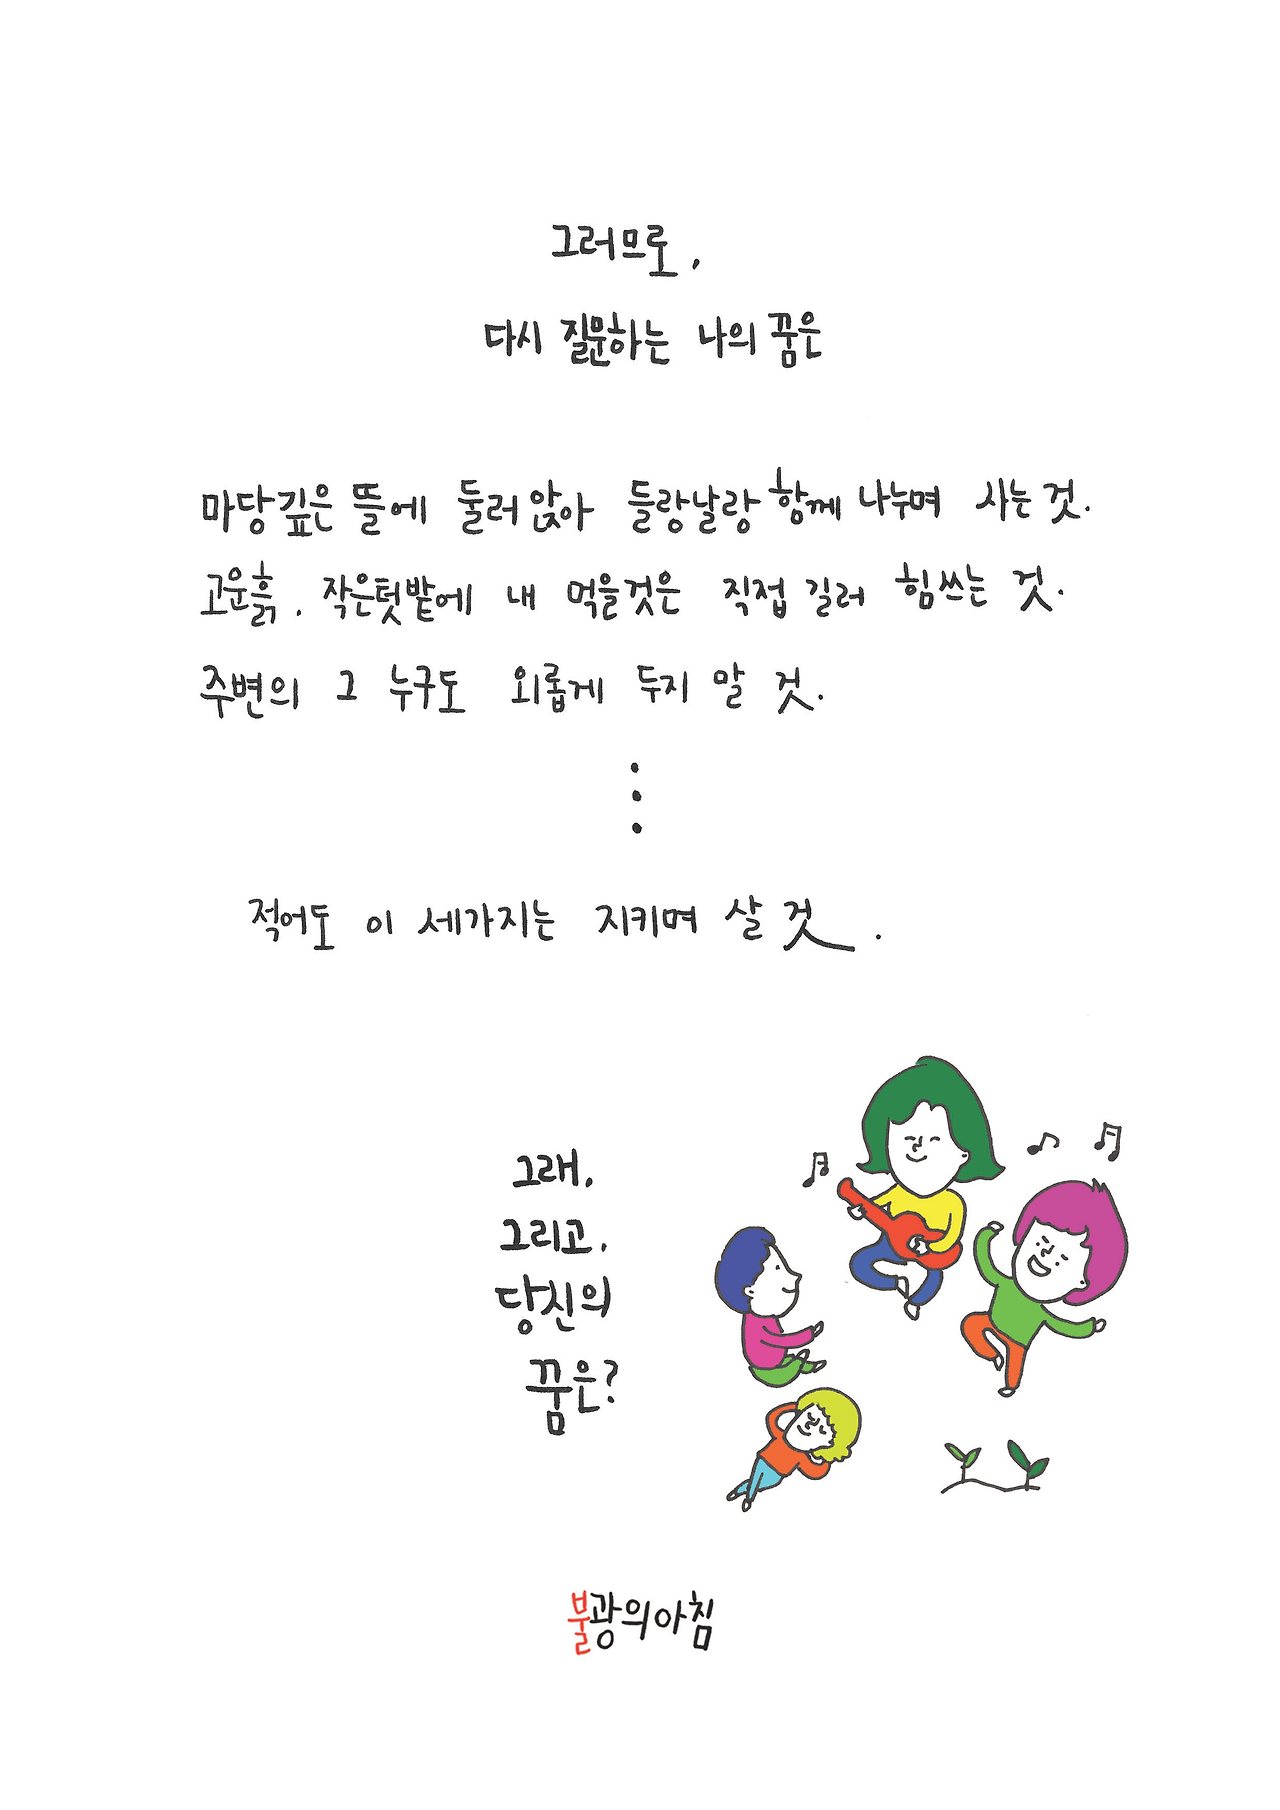 그러므로,
다시 질문하는 나의 꿈은
마당깊은 뜰에 둘러앉아 들랑날랑 함께 나누며 사는 것.
고운흙, 작은텃밭에 내 먹을것은 직접 길러 힘쓰는 것.
주변의 그 누구도 외롭게 두지 말 것.
⋮
적어도 이 세가지는 지키며 살 것.
그래,
그리고,
당신의
꿈은?
불광의아침